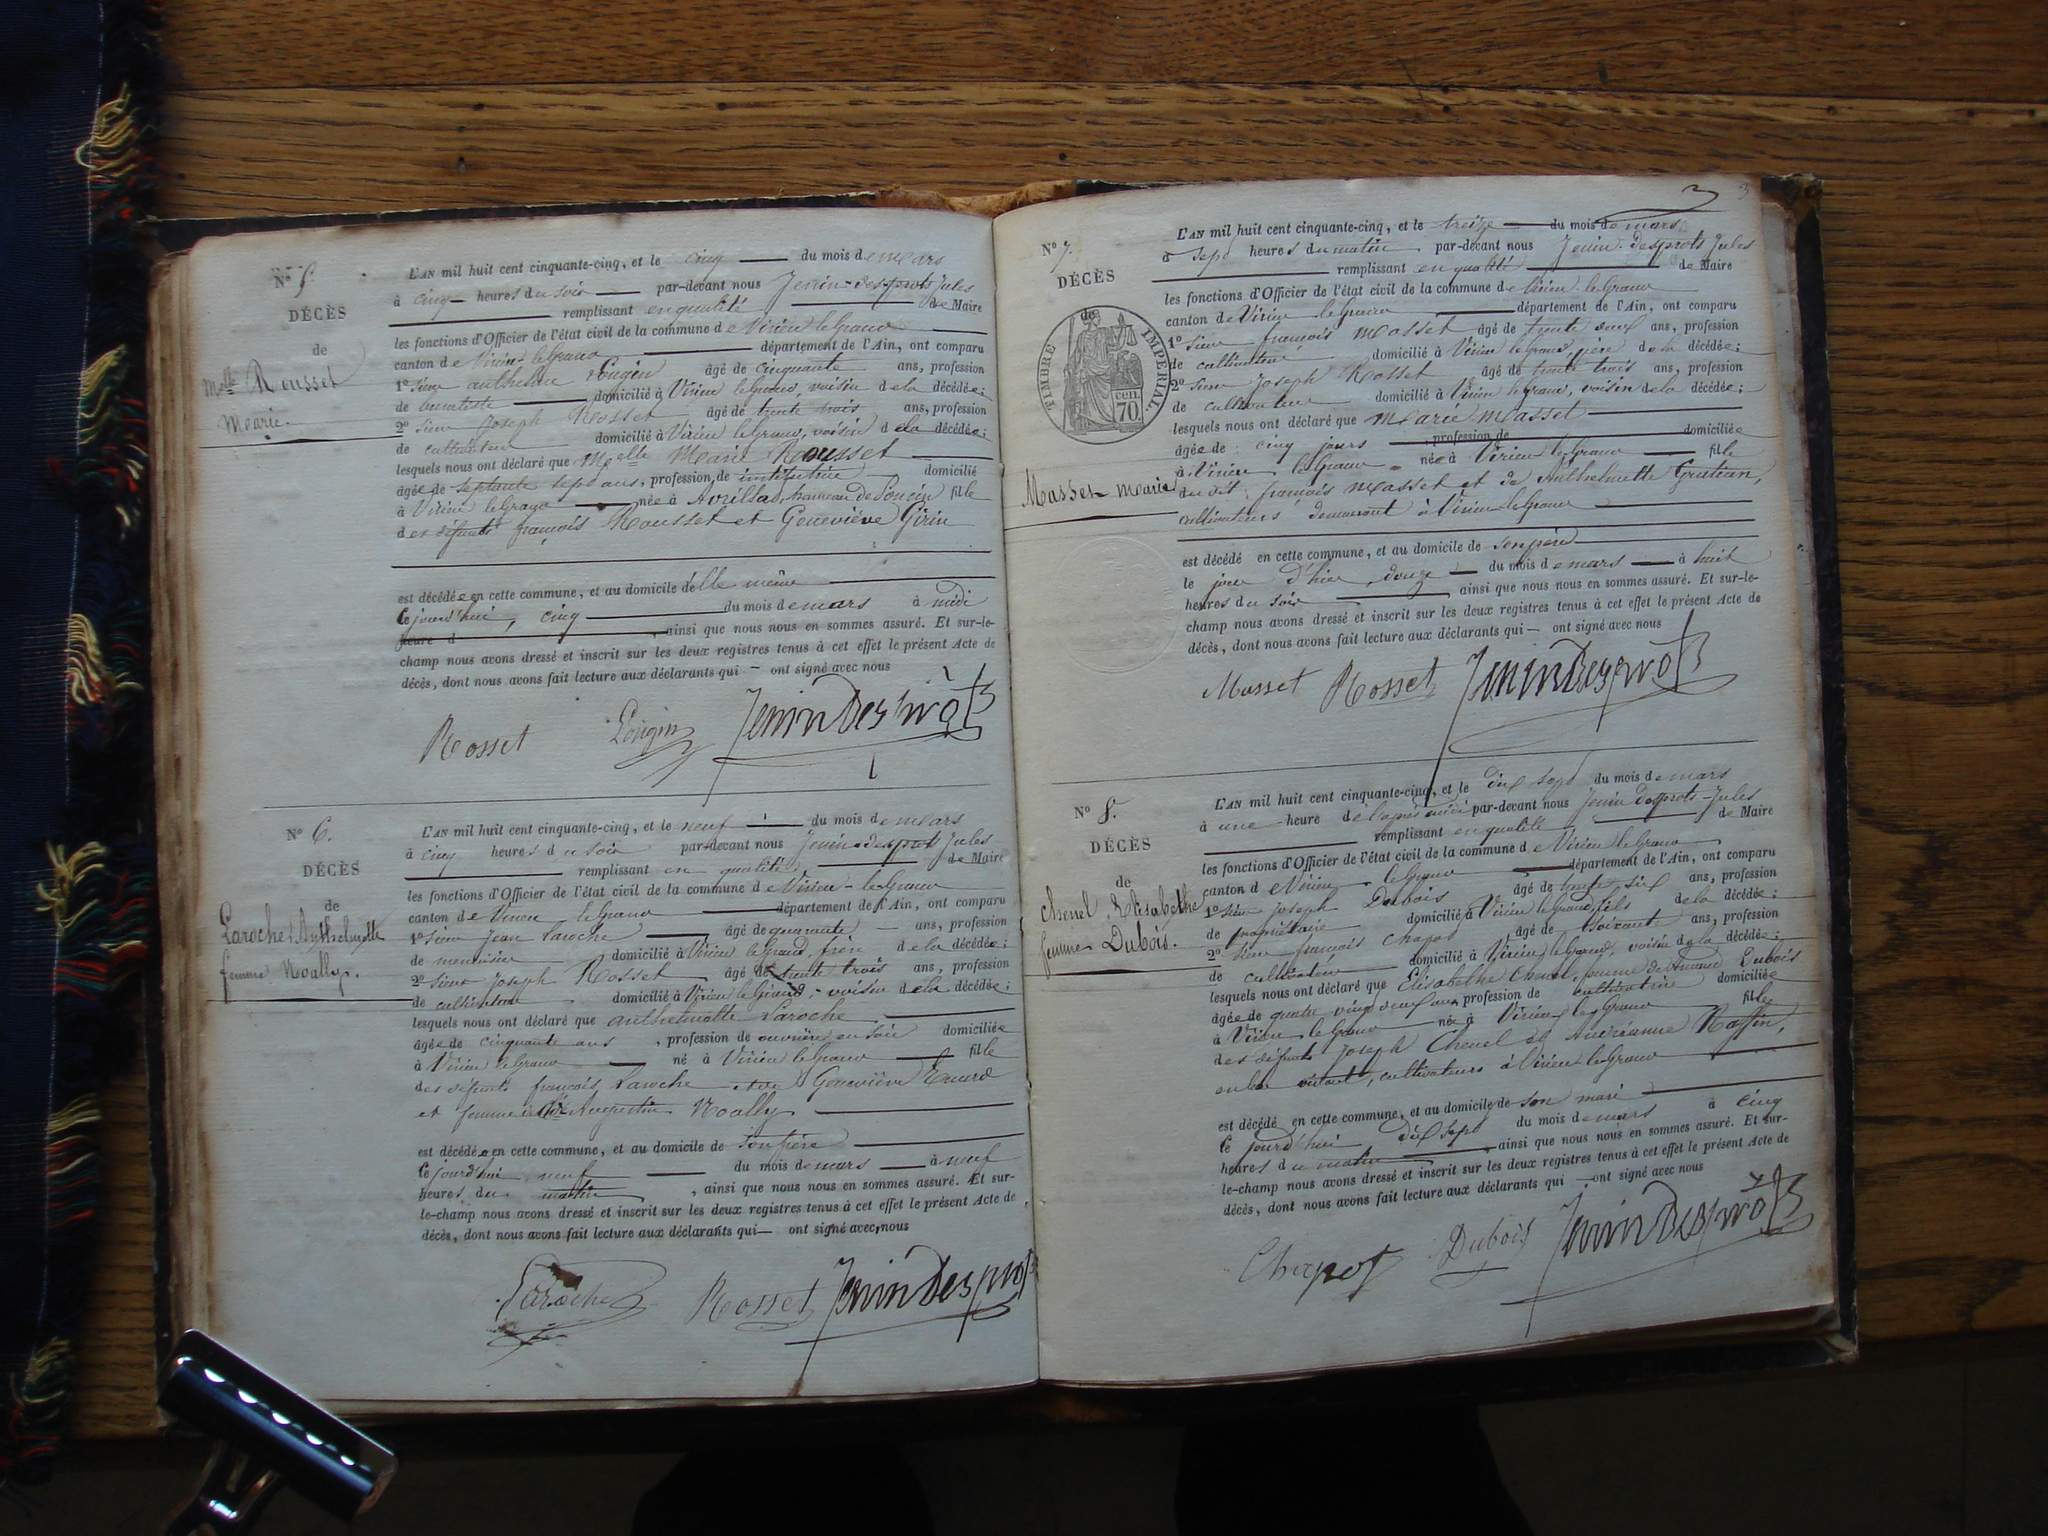 N° 5.
DÉCÈS
de
Melle Rousset
Marie.
L'AN mil huit cent cinquante-cinq, et le cinq du mois de mars
à cinq heures du soir par-devant nous Jenin-desprots Jules
remplissant en qualité de Maire
les fonctions d'Officier de l'état civil de la commune de Virieu le Grand
canton de Virieu le Grand département de l'Ain, ont comparu
1° sieur anthelme âgé de cinquante ans, profession
de domicilié à Virieu le Grand, voisin de la décédée;
2° sieur Joseph Rosset âgé de trente trois ans, profession
de cultivateur domicilié à Virieu le Grand, voisin de la décédée;
lesquels nous ont déclaré que Melle Marie Rousset
âgée de septante sept ans, profession de institutrice domicilié
à Virieu le Grand née à hameau de Poncin fille
des défunts françois Rousset et Geneviève Girin
est décédée en cette commune, et au domicile d'elle même
Cejourd'hui, cinq du mois de mars à midi
heure d , ainsi que nous nous en sommes assuré. Et sur-le-
champ nous avons dressé et inscrit sur les deux registres tenus à cet effet le présent Acte de
décès, dont nous avons fait lecture aux déclarants qui — ont signé avec nous
Rosset Jenin Desprots
N° 6.
DÉCÈS
de
Laroche Anthelmette
femme Noally.
L'AN mil huit cent cinquante-cinq, et le neuf du mois de mars
à cinq heures du soir par-devant nous Jenin-desprots Jules
remplissant en qualité de Maire
les fonctions d'Officier de l'état civil de la commune de Virieu-le-Grand
canton de Virieu le Grand département de l'Ain, ont comparu
1° sieur Jean Laroche âgé de quarante ans, profession
de menuisier domicilié à Virieu le Grand, frère de la décédée;
2° sieur Joseph Rosset âgé de trente trois ans, profession
de cultivateur domicilié à Virieu le Grand, voisin de la décédée;
lesquels nous ont déclaré que anthelmette Laroche
âgée de cinquante ans, profession de ouvrière en soie domiciliée
à Virieu le Grand né à Virieu le Grand fille
des défunts françois Laroche et de Geneviève
et femme de Augustin Noally
est décédée en cette commune, et au domicile de son frère
Cejourd'hui neuf du mois de mars à neuf
heures du matin, ainsi que nous nous en sommes assuré. Et sur-
le-champ nous avons dressé et inscrit sur les deux registres tenus à cet effet le présent Acte de
décès, dont nous avons fait lecture aux déclarants qui — ont signé avec nous
Laroche Rosset Jenin Desprots
3
N° 7.
DÉCÈS
de
TIMBRE IMPÉRIAL
CEN.
70
Masset Marie
L'AN mil huit cent cinquante-cinq, et le treize du mois de mars
à sept heures du matin par-devant nous Jenin-desprots Jules
remplissant en qualité de Maire
les fonctions d'Officier de l'état civil de la commune de Virieu le Grand
canton de Virieu le Grand département de l'Ain, ont comparu
1° sieur françois Masset âgé de trente ans, profession
de cultivateur domicilié à Virieu le Grand, père de la décédée;
2° sieur Joseph Rosset âgé de trente trois ans, profession
de cultivateur domicilié à Virieu le Grand, voisin de la décédée;
lesquels nous ont déclaré que Marie Masset
âgée de cinq jours, profession de domiciliée
à Virieu le Grand née à Virieu le Grand fille
du dit françois Masset et de Anthelmette Gratian,
cultivateurs demeurant à Virieu le Grand
est décédé en cette commune, et au domicile de son père
le jour d'hier douze du mois de mars à huit
heures du soir, ainsi que nous nous en sommes assuré. Et sur-le-
champ nous avons dressé et inscrit sur les deux registres tenus à cet effet le présent Acte de
décès, dont nous avons fait lecture aux déclarants qui — ont signé avec nous
Masset Rosset Jenin Desprots
N° 8.
DÉCÈS
de
Chenel Elisabethe
femme Dubois.
L'AN mil huit cent cinquante-cinq, et le dix sept du mois de mars
à une heure de l'après midi par-devant nous Jenin desprots Jules
remplissant en qualité de Maire
les fonctions d'Officier de l'état civil de la commune de Virieu le Grand
canton de Virieu le Grand département de l'Ain, ont comparu
1° sieur Joseph Dubois âgé de trente-six ans, profession
de propriétaire domicilié à Virieu le Grand, fils de la décédée;
2° sieur françois Chapot âgé de soixante ans, profession
de cultivateur domicilié à Virieu le Grand, voisin de la décédée;
lesquels nous ont déclaré que Elisabethe Chenel, femme de Dubois
âgée de quatre vingt deux ans, profession de cultivatrice domiciliée
à Virieu le Grand née à Virieu le Grand fille
des défunts Joseph Chenel et
en leur vivant, cultivateurs à Virieu le Grand
est décédé en cette commune, et au domicile de son mari
Ce jourd'hui dix sept du mois de mars à cinq
heures du matin, ainsi que nous nous en sommes assuré. Et sur-
le-champ nous avons dressé et inscrit sur les deux registres tenus à cet effet le présent Acte de
décès, dont nous avons fait lecture aux déclarants qui — ont signé avec nous
Chapot Dubois Jenin Desprots